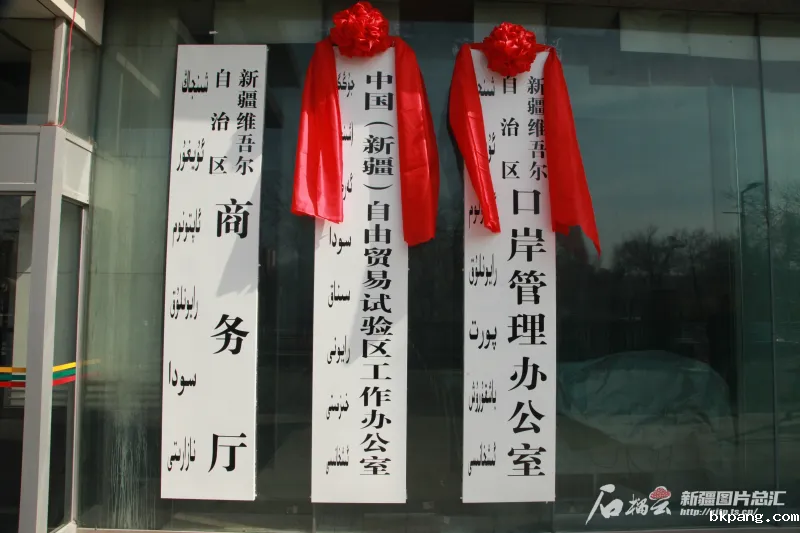 شىنجاڭ
ئۇيغۇر
ئاپتونوم
رايونلۇق
سودا
نازارىتى
新疆维吾尔
自治区
商务厅
سودا
سىناق
رايونى
خىزمىتى
ئىشخانىسى
中国（新疆）自由贸易试验区工作办公室
رايونلۇق
پورت
باشقۇرۇش
ئىشخانىسى
新疆维吾尔
自治区
口岸管理办公室
石榴云
新疆图片总汇
bkpang.com